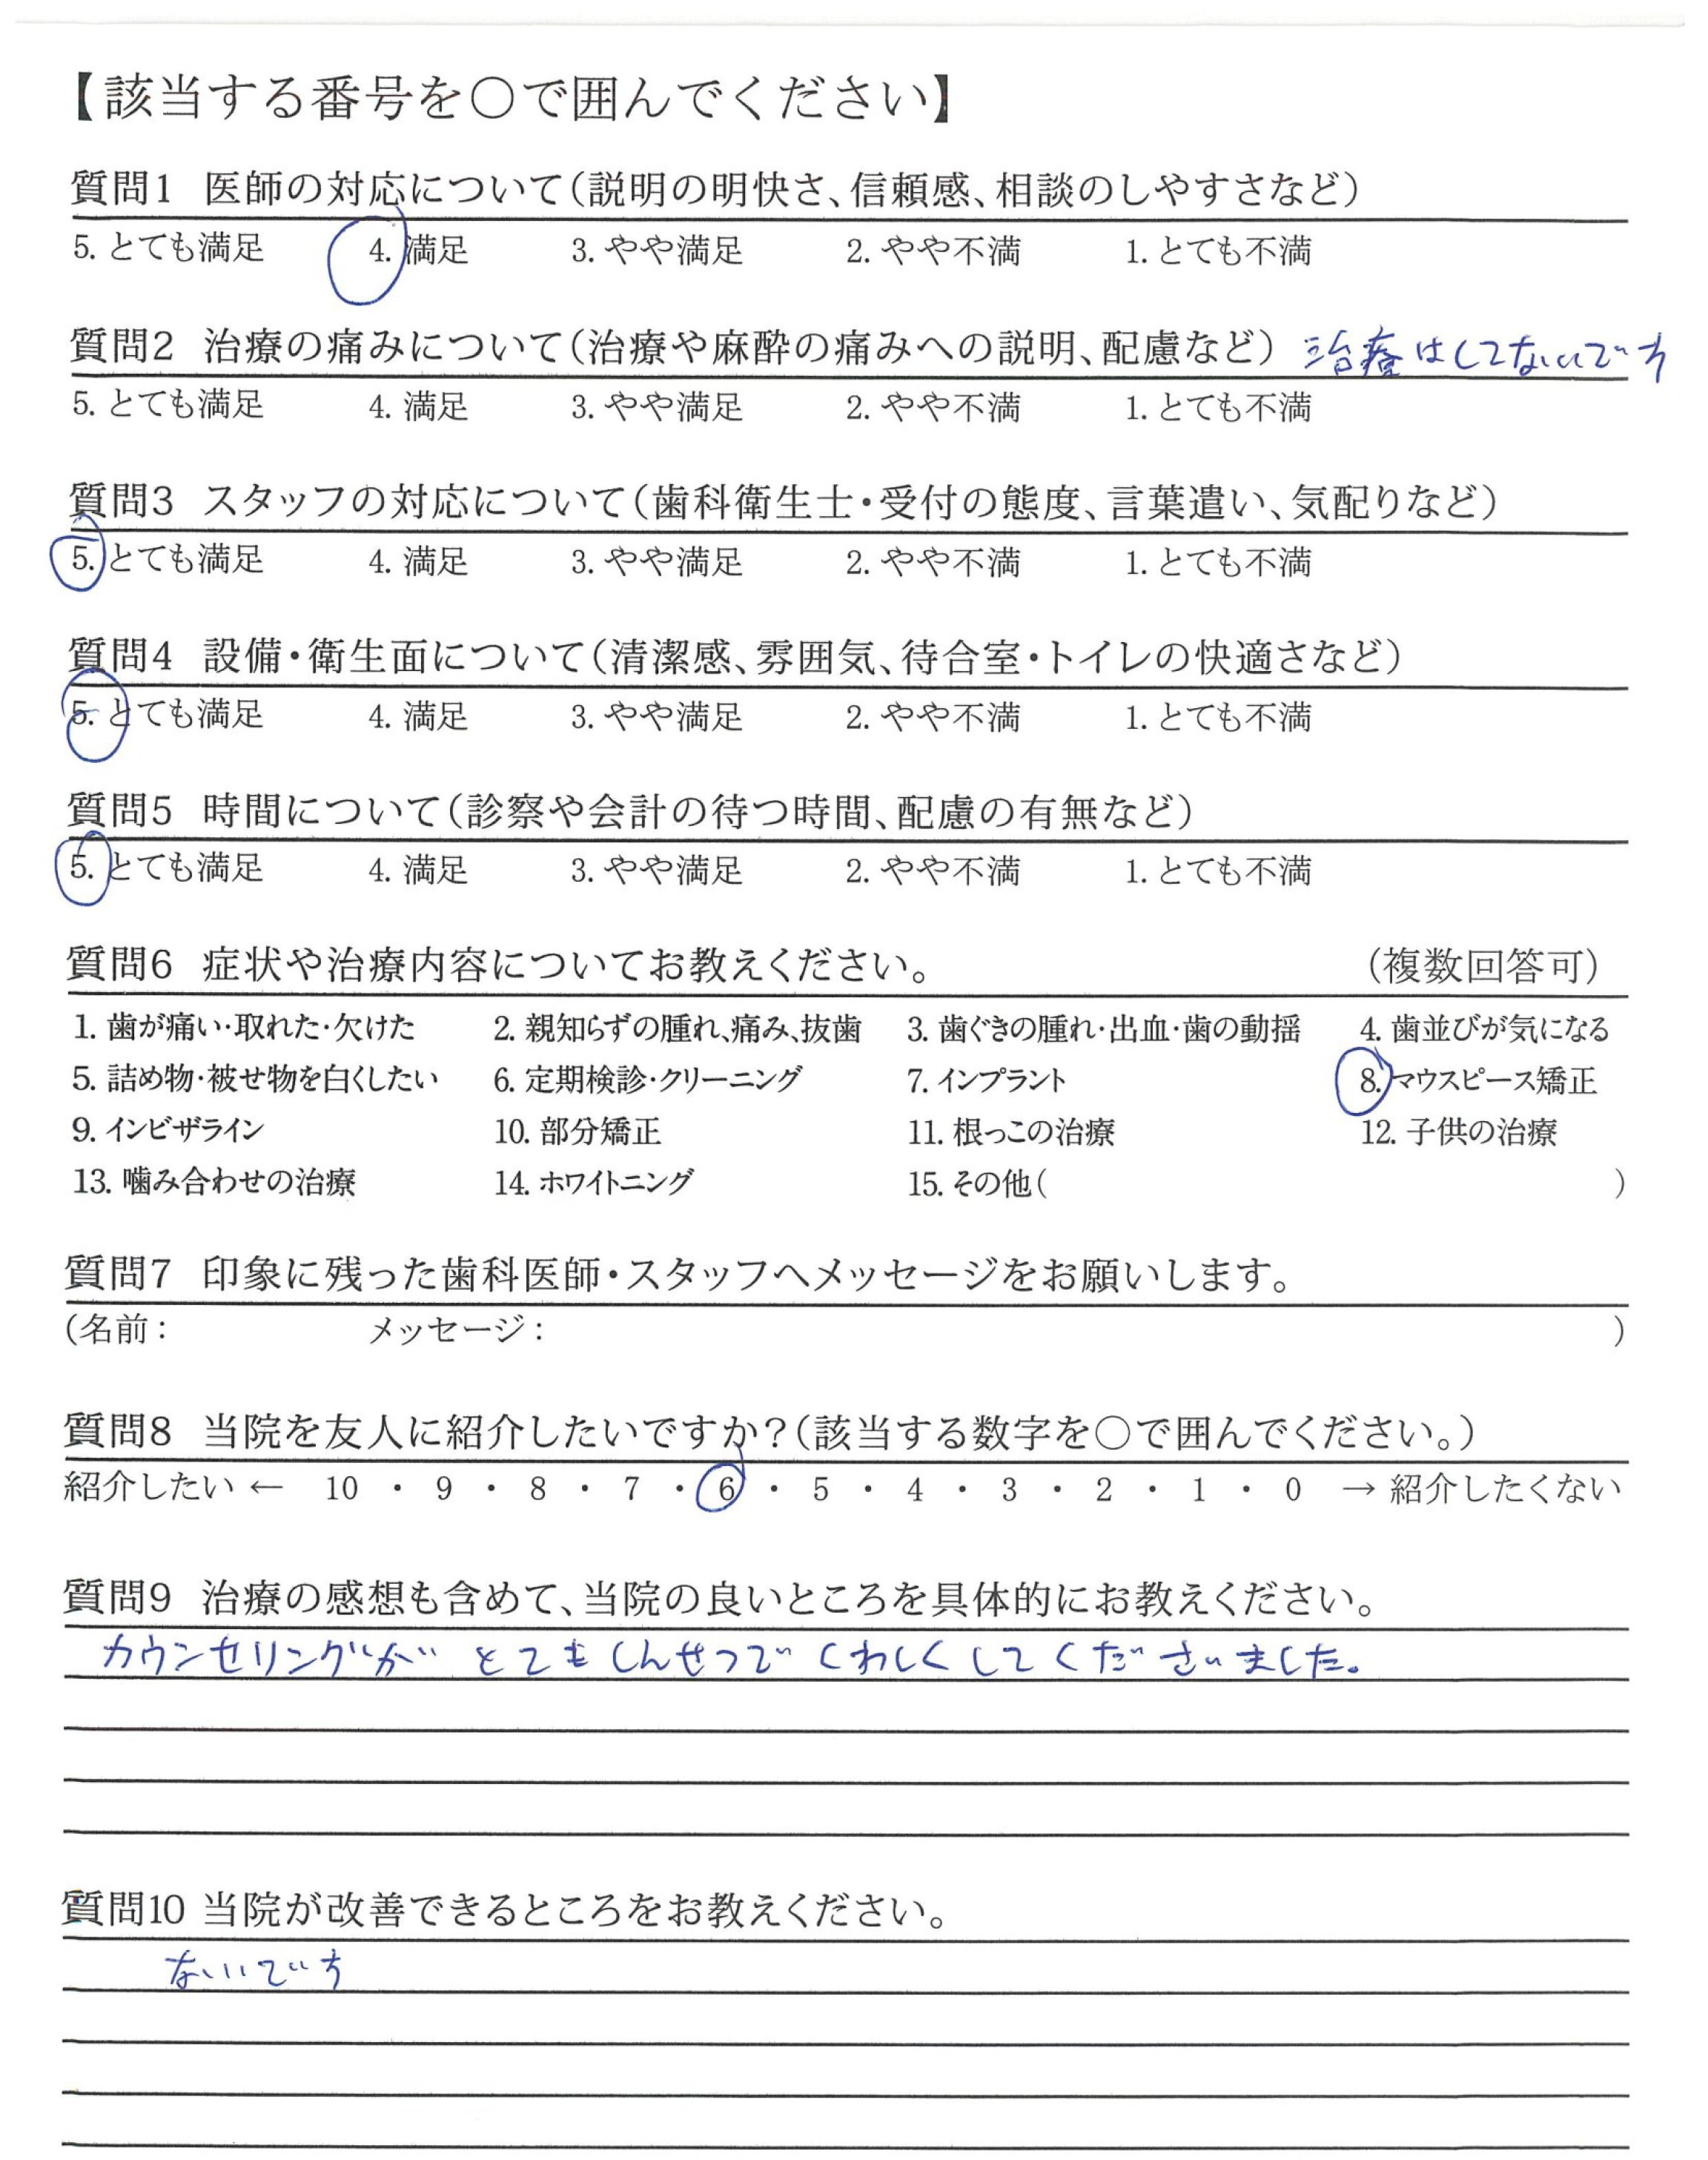 【該当する番号を○で囲んでください】
質問1 医師の対応について(説明の明快さ、信頼感、相談のしやすさなど)
5. とても満足 4. 満足 3. やや満足 2. やや不満 1. とても不満
質問2 治療の痛みについて(治療や麻酔の痛みへの説明、配慮など) 治療はしてないです
5. とても満足 4. 満足 3. やや満足 2. やや不満 1. とても不満
質問3 スタッフの対応について(歯科衛生士・受付の態度、言葉遣い、気配りなど)
5. とても満足 4. 満足 3. やや満足 2. やや不満 1. とても不満
質問4 設備・衛生面について(清潔感、雰囲気、待合室・トイレの快適さなど)
5. とても満足 4. 満足 3. やや満足 2. やや不満 1. とても不満
質問5 時間について(診察や会計の待つ時間、配慮の有無など)
5. とても満足 4. 満足 3. やや満足 2. やや不満 1. とても不満
質問6 症状や治療内容についてお教えください。 (複数回答可)
1. 歯が痛い・取れた・欠けた 2. 親知らずの腫れ、痛み、抜歯 3. 歯ぐきの腫れ・出血・歯の動揺 4. 歯並びが気になる
5. 詰め物・被せ物を白くしたい 6. 定期検診・クリーニング 7. インプラント 8. マウスピース矯正
9. インビザライン 10. 部分矯正 11. 根っこの治療 12. 子供の治療
13. 噛み合わせの治療 14. ホワイトニング 15. その他( )
質問7 印象に残った歯科医師・スタッフへメッセージをお願いします。
(名前: メッセージ: )
質問8 当院を友人に紹介したいですか?(該当する数字を○で囲んでください。)
紹介したい ← 10 ・ 9 ・ 8 ・ 7 ・ 6 ・ 5 ・ 4 ・ 3 ・ 2 ・ 1 ・ 0 → 紹介したくない
質問9 治療の感想も含めて、当院の良いところを具体的にお教えください。
カウンセリングが とてもしんせつで くわしく してくださいました。
質問10 当院が改善できるところをお教えください。
ないです